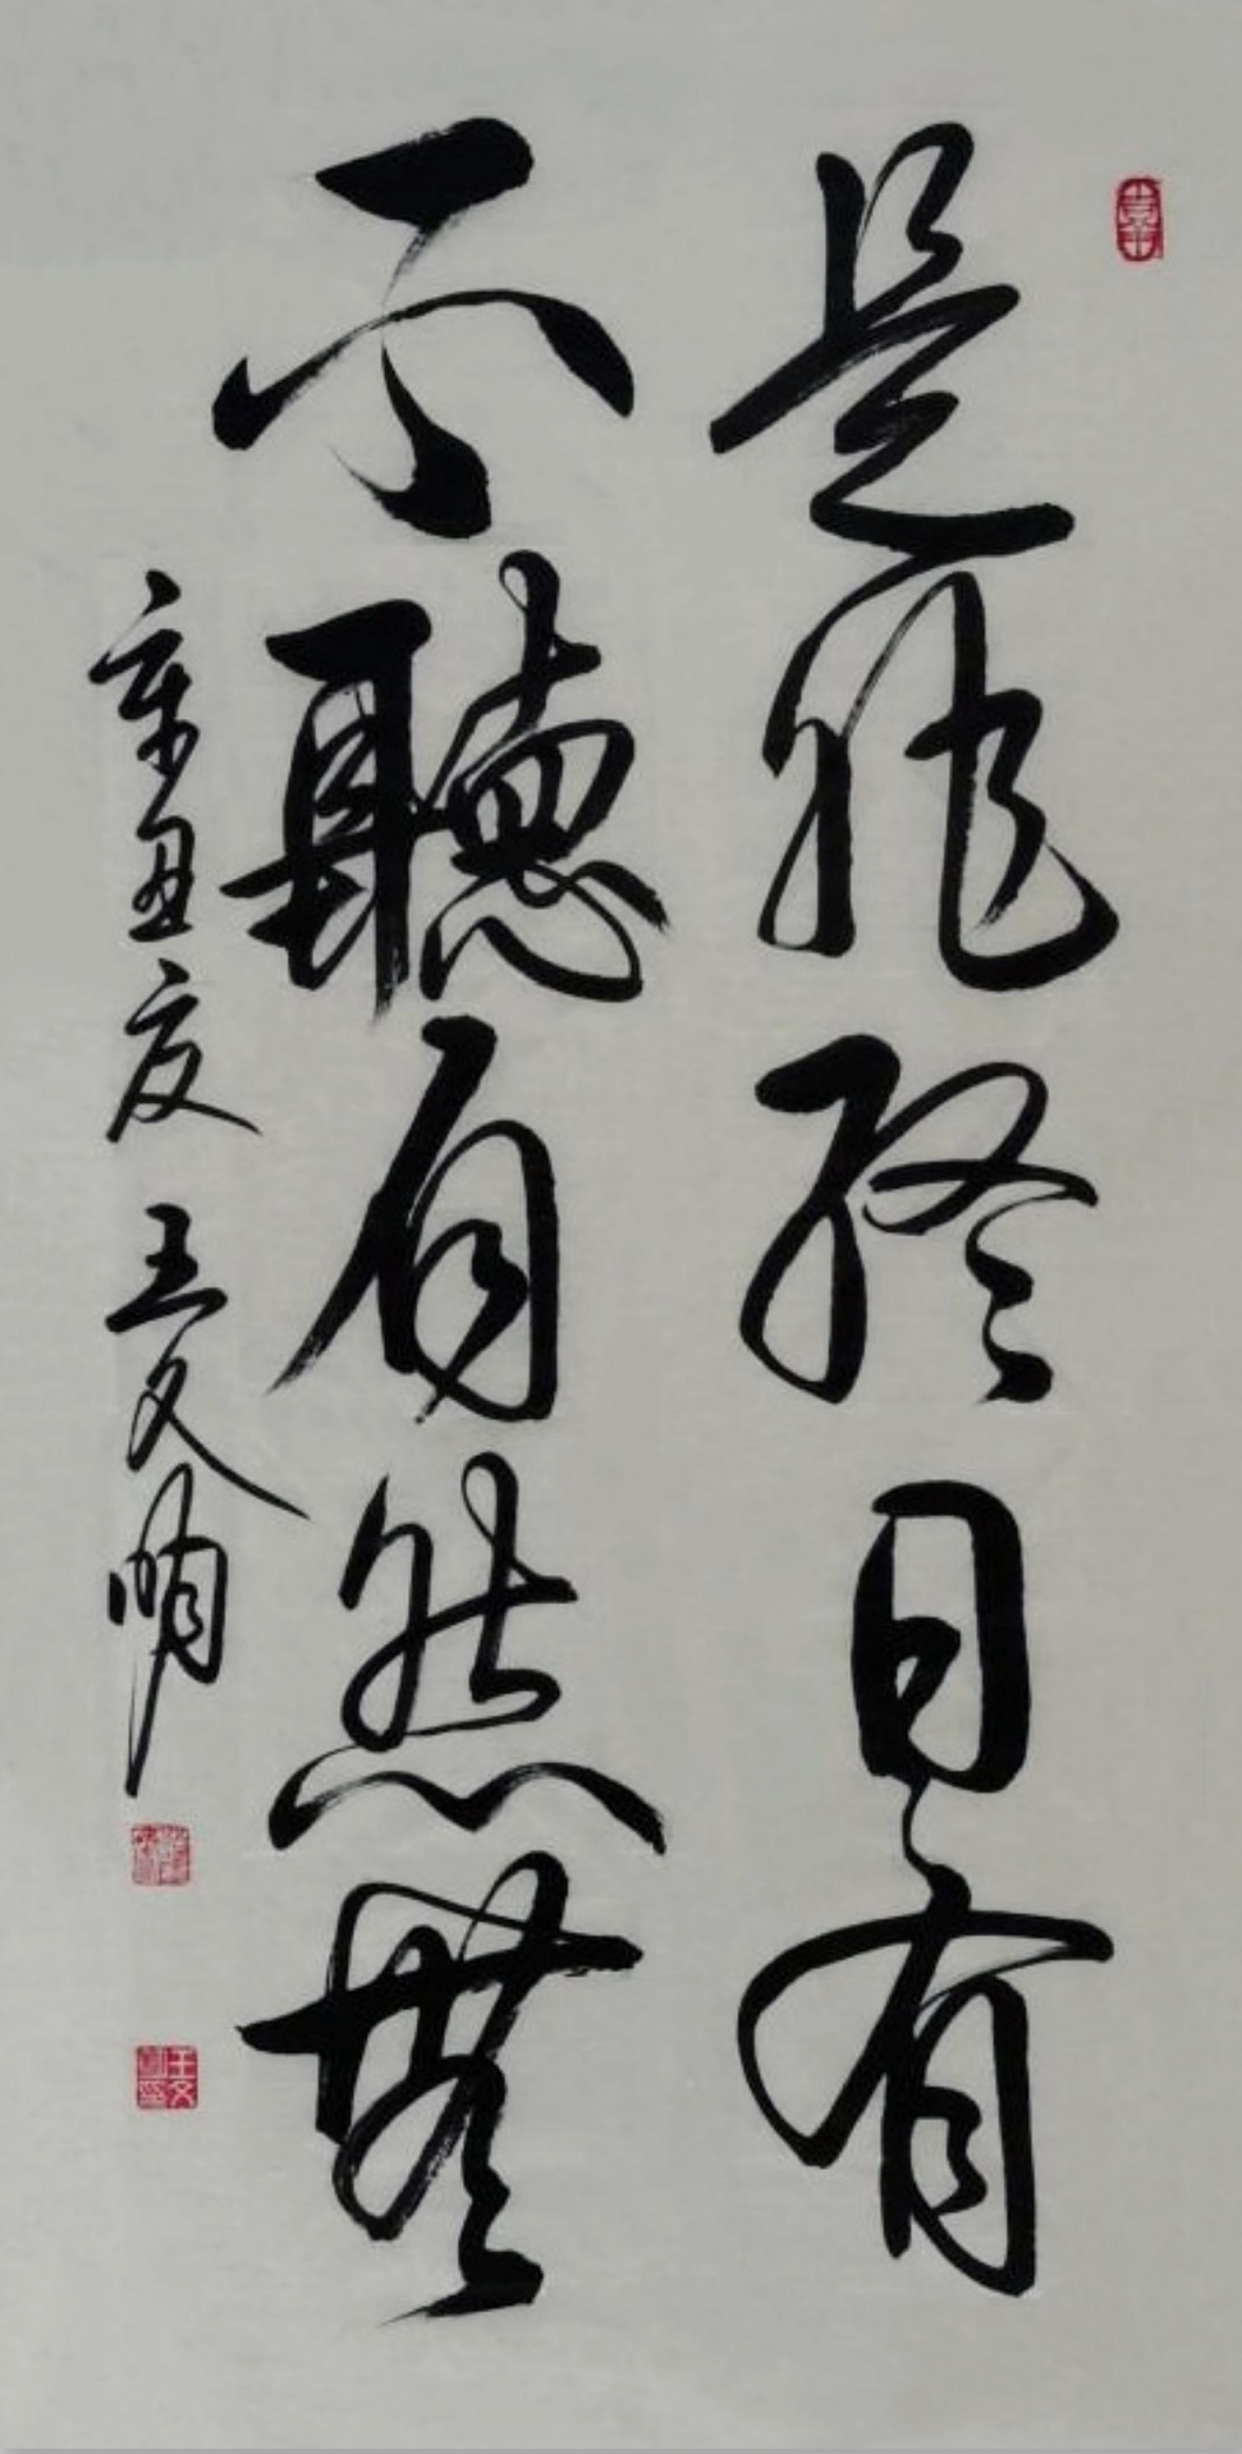 是非終日有
不聽自然無
辛丑夏 王文明